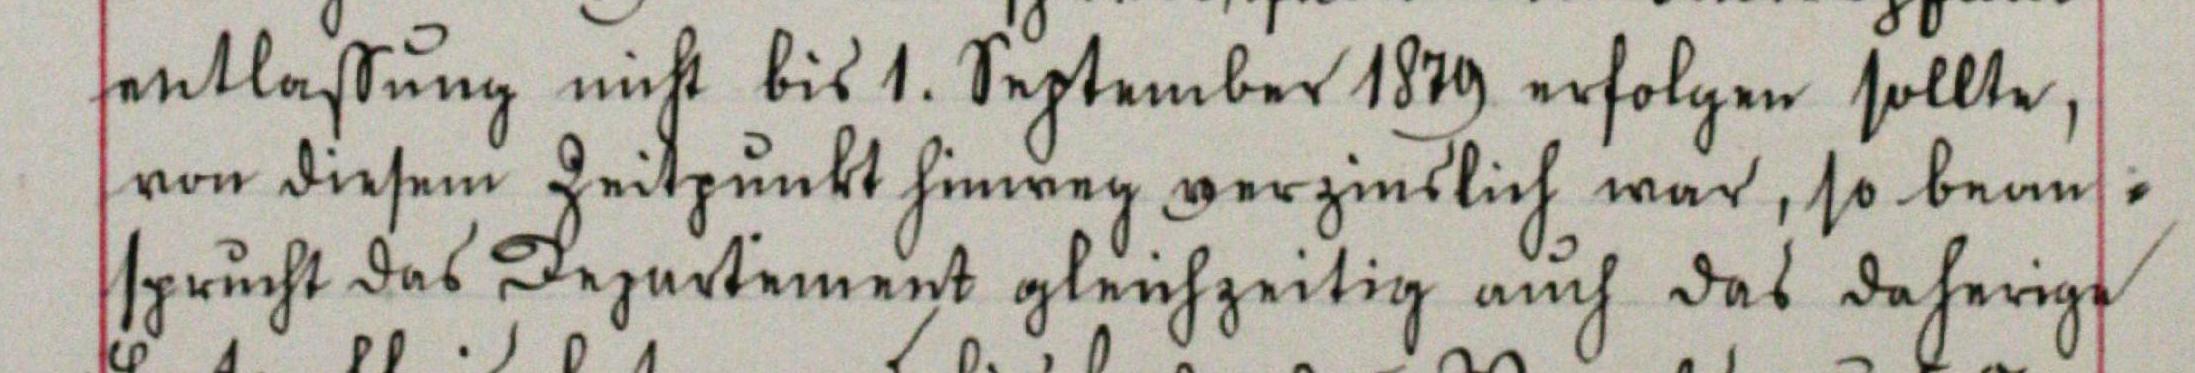 entlassung nicht bis 1. September 1879 erfolgen sollte,
von diesem Zeitpunkt hinweg verzinslich war, so bean-
sprucht das Departement gleichzeitig auch das daherige